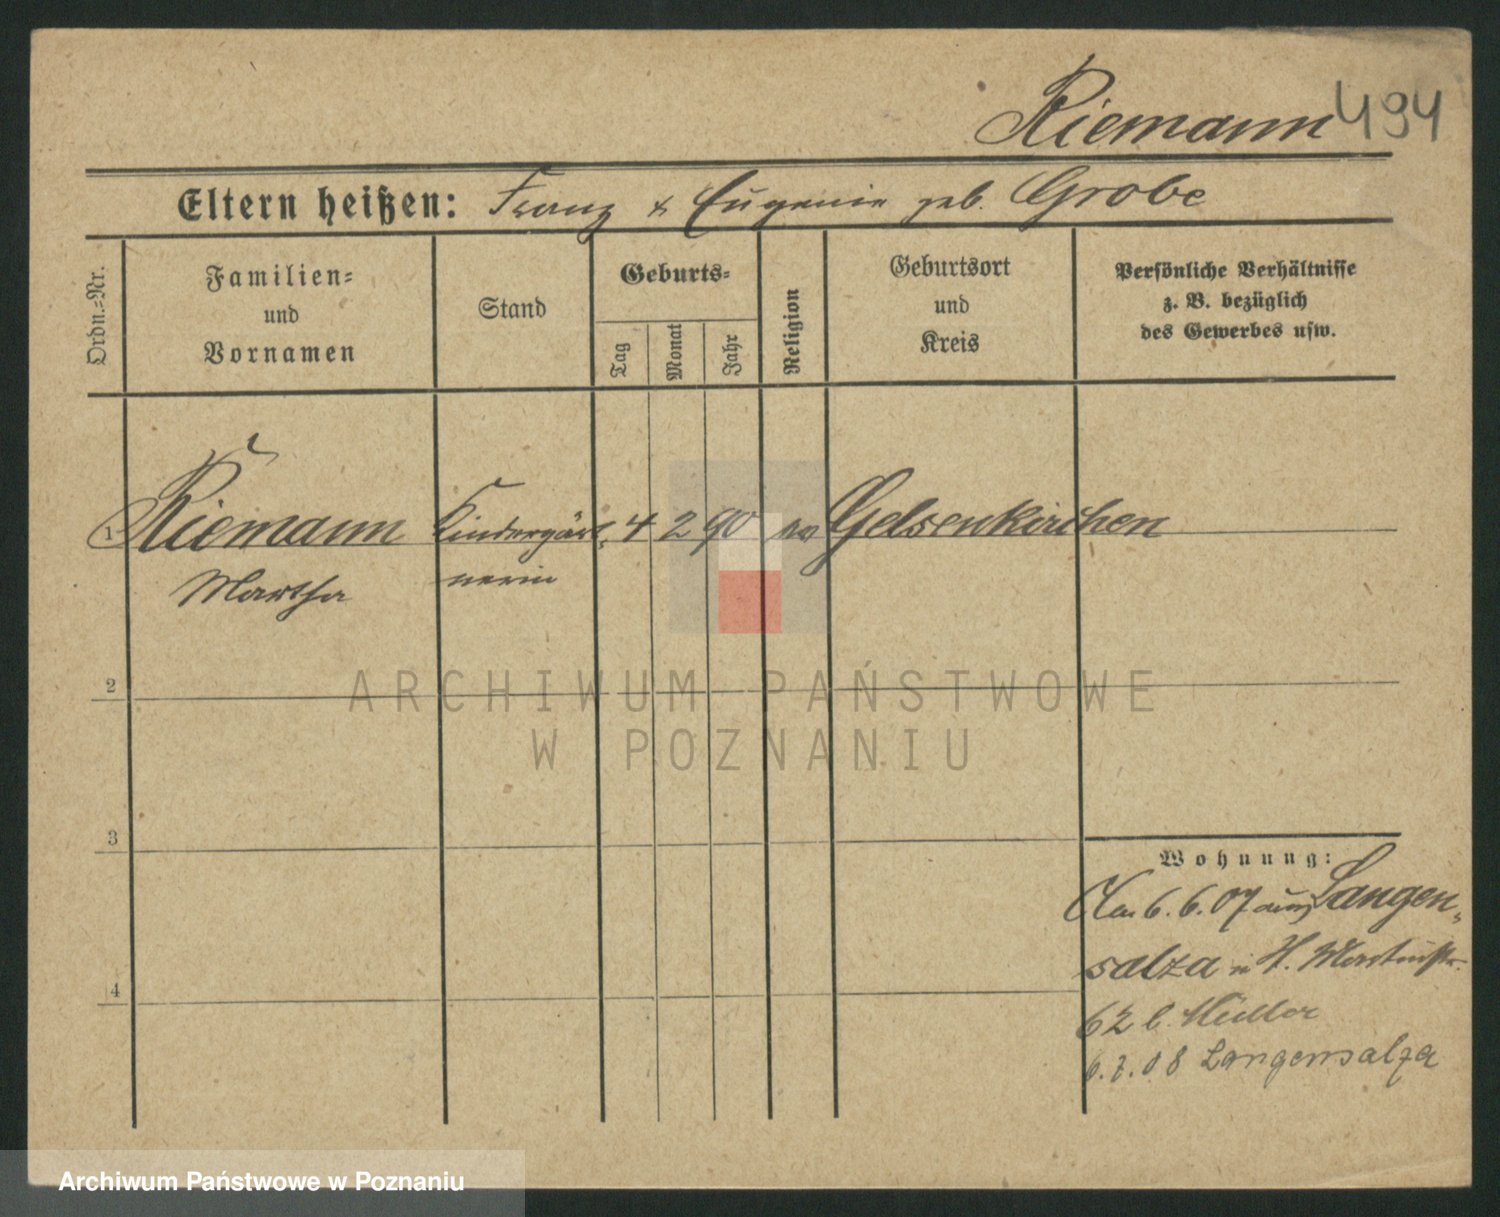 Riemann 494
Eltern heißen: Franz & Eugenie geb. Grobe
Ordn.=Nr.
Familien=
und
Vornamen
Stand
Geburts=
Tag
Monat
Jahr
Religion
Geburtsort
und
Kreis
Persönliche Verhältnisse
z. B. bezüglich
des Gewerbes usw.
1 Riemann Kindergärt- 4 2 90 ev Gelsenkirchen
Martha nerin
2
3
4
Wohnung:
6.6.07 aus Langen-
salza in H. Martinstr.
62 b. Müller
6.7.08 Langensalza
ARCHIWUM PAŃSTWOWE
W POZNANIU
Archiwum Państwowe w Poznaniu